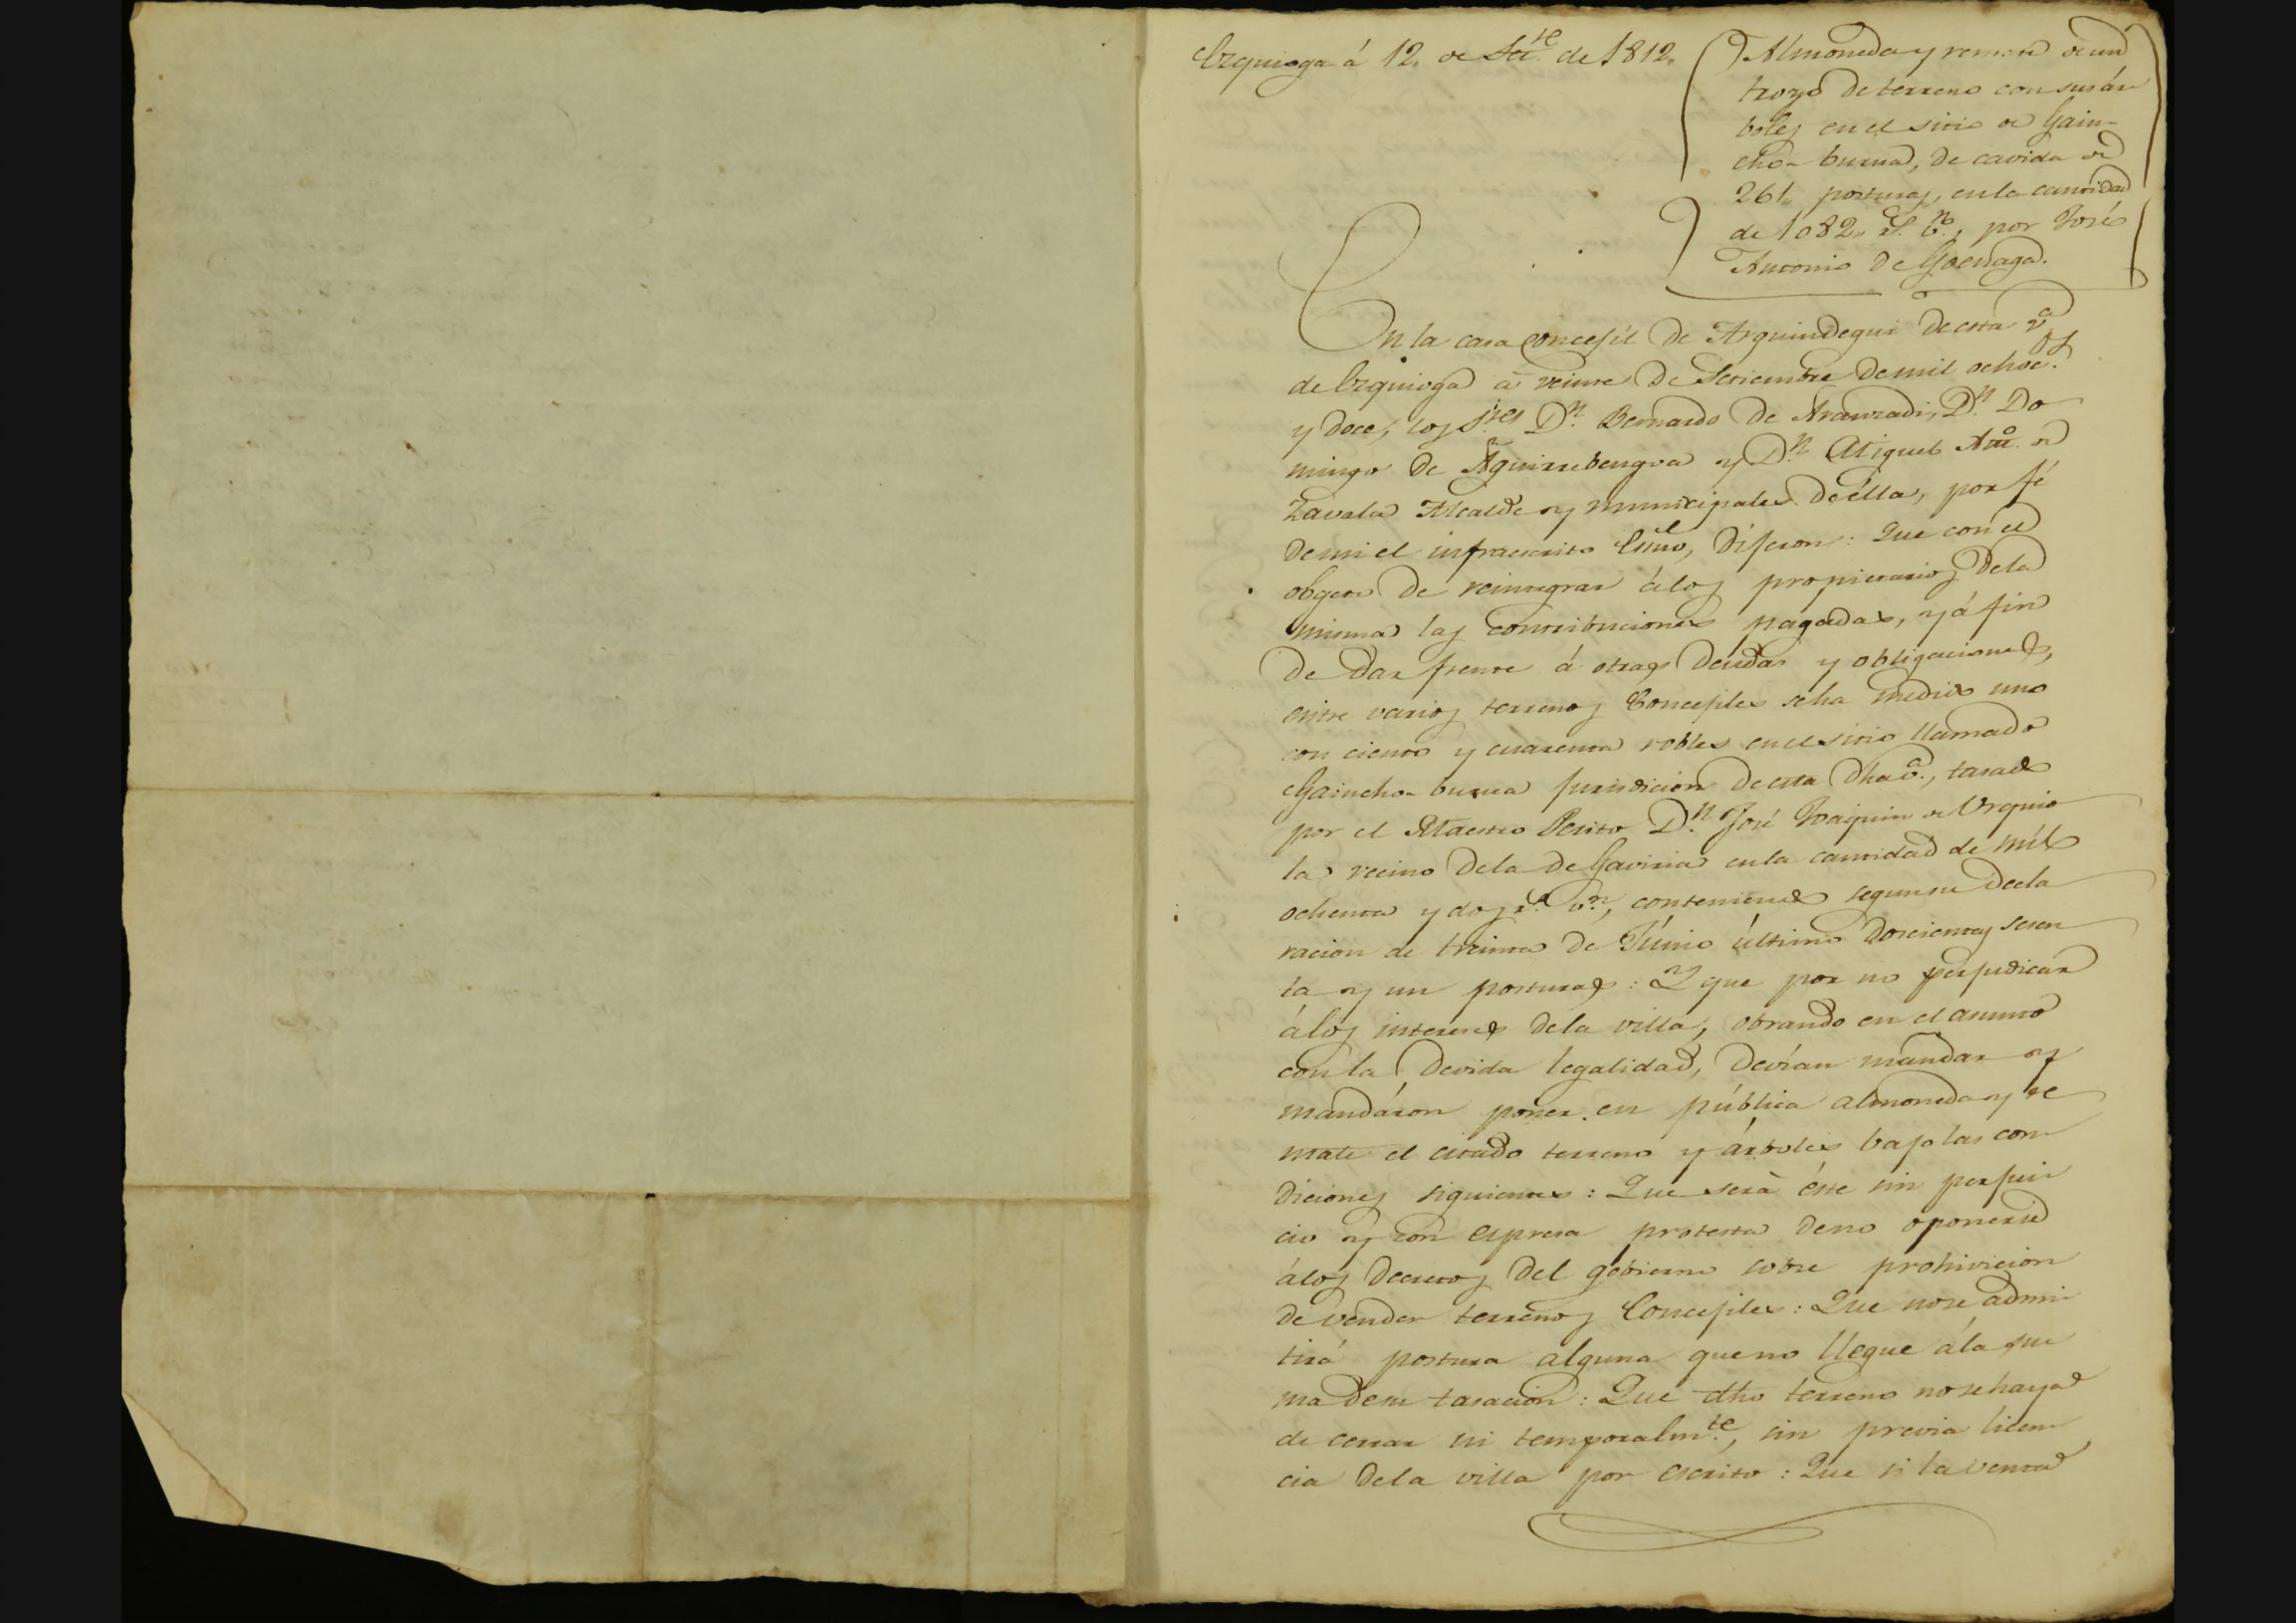 Ezquioga á 12. de Set.re de 1812.
Almoneda y remate de un
trozo de terreno con sus ár
boles en el sitio de Gain-
cho-burua, de cavida de
261,, posturas, en la cantidad
de 1082,, r.s v.n, por José
Antonio de Goenaga.
En la casa Concejil de Arguindegui de esta v.a
de Ezquioga á veinte de Setiembre de mil ochoc.os
y doce, los S.res D.n Bernardo de Aranzadi, D.n Do
mingo de Aguirrebengoa y D.n Miguel Ant.o de
Zavala Alcalde y municipales de élla, por fé
de mi el infraescrito Esno, Dijeron: Que con el
obgeto de reintegrar á los propietarios de la
misma las contribuciones pagadas, y á fin
de dar frente á otras deudas y obligaciones,
entre varios terrenos Concejiles se ha medido uno
con ciento y cuarenta robles en el sitio llamado
Gaincho-burua jurisdicion de esta dha v.a, tasado
por el Maestro Perito D.n José Joaquin de Urquio
la vecino de la de Gaviria en la cantidad de mil
ochenta y dos r.s v.n, conteniendo segun su decla
racion de treinta de Júnio último doscientas sesen
ta y un posturas: Y que por no perjudicar
á los intereses de la villa, obrando en el asunto
con la devida legalidad, devían mandar y
mandáron poner en pública almoneda y re
mate el citado terreno y árboles bajo las con
diciones siguientes: Que será éste sin perjui
cio y con espresa protesta de no oponerse
á los decretos del gobierno sobre prohivicion
de vender terrenos Concejiles: Que no se admi
tirá postura alguna que no llegue á la su
ma de su tasacion: Que dho terreno no se haya
de cerrar ni temporalm.te, sin previa licen
cia de la villa por escrito: Que si la venta